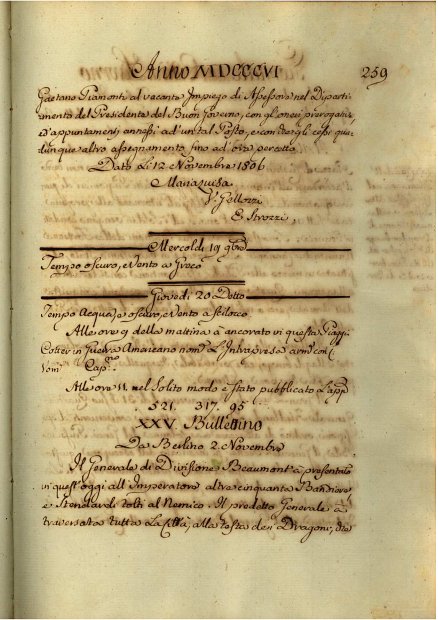 Anno MDCCCVI 259
Gaetano Piamonti al vacante Impiego di Assessore nel Diparti=
mento del Presidente del Buon Governo, con gl'onori prerogative
e d'appuntamenti annessi ad un tal Posto, e con dargli cessi qua=
lunque altro assegnamento fino ad ora percetto.
Dato Li 12 Novembre 1806
Maria Luisa
V. Gellozzi
E. Strozzi
Mercoldi 19 9bre
Tempo oscuro, e Vento a Greco
Giovedi 20 Detto
Tempo Acquajo oscuro, e Vento a Scilocco
Alle ore 9 della mattina à ancorato in questa Piaggia
Cotter in Guerra Americano nom° L'Intrapresa arm° con
Uom Cap°
Alle ore 11 nel Solito modo è stato pubblicato L'app
521. 317. 95
XXV. Bullettino
Da Berlino 2. Novembre
Il Generale di Divisione Beaumont à presentato
in quest'oggi all'Imperatore altre cinquanta Bandiere
e Stendardi tolti al Nemico. Il predetto Generale à
traversata tutta La Città, alla testa dei Dragoni, che